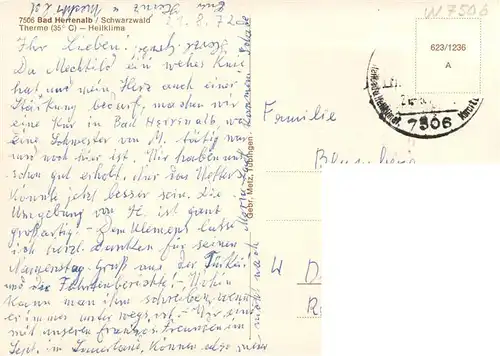 7506 Bad Herrenalb / Schwarzwald
Therme (35° C) – Heilklima
21.8.72
W 7506
623/1236
A
7506
Gebr. Metz, Tübingen
Ihr Lieben!
Da Mechtild ein wehes Knie
hat, und mein Herz auch einer
Stärkung bedurf, machen wir
eine Kur in Bad Herrenalb wo
eine Schwester von M. tätig war
und noch hier ist. Wir haben uns
schon gut erholt, nur das Wetter
könnte jetzt besser sein. Die
Umgebung von H. ist ganz
großartig! – Dem Klemens lasse
ich herzl. danken für seinen
Namenstag-Gruß aus der Türkei
und die Fahrtenberichte. – Wohin
kann man ihm schreiben, wenn
er immer unterwegs ist. – Wir sind
mit unseren französ. Freunden im
Sept. in Sauerland, können also
nicht nach
Familie
W
D